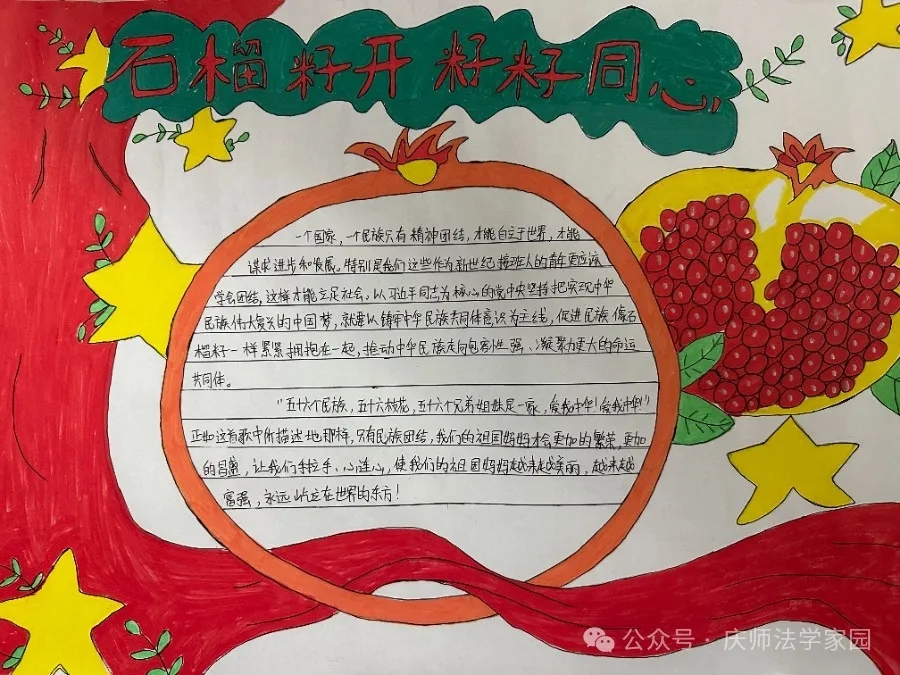 石榴籽开 籽籽同心
一个国家，一个民族只有精神团结，才能自立于世界，才能
谋求进步和发展。特别是我们这些作为新世纪接班人的青年更应该
学会团结，这样才能立足社会，以习近平同志为核心的党中央坚持把实现中华
民族伟大复兴的中国梦，就要以铸牢中华民族共同体意识为主线，促进民族像石
榴籽一样紧紧拥抱在一起，推动中华民族走向包容性强、凝聚力更大的命运
共同体。
"五十六个民族，五十六枝花，五十六个兄弟姐妹是一家，爱我中华！爱我中华！"
正如这首歌中所描述地那样，只有民族团结，我们的祖国妈妈才会更加的繁荣，更加
的昌盛，让我们手拉手、心连心，使我们的祖国妈妈越来越美丽，越来越
富强，永远屹立在世界的东方！
公众号·庆师法学家园